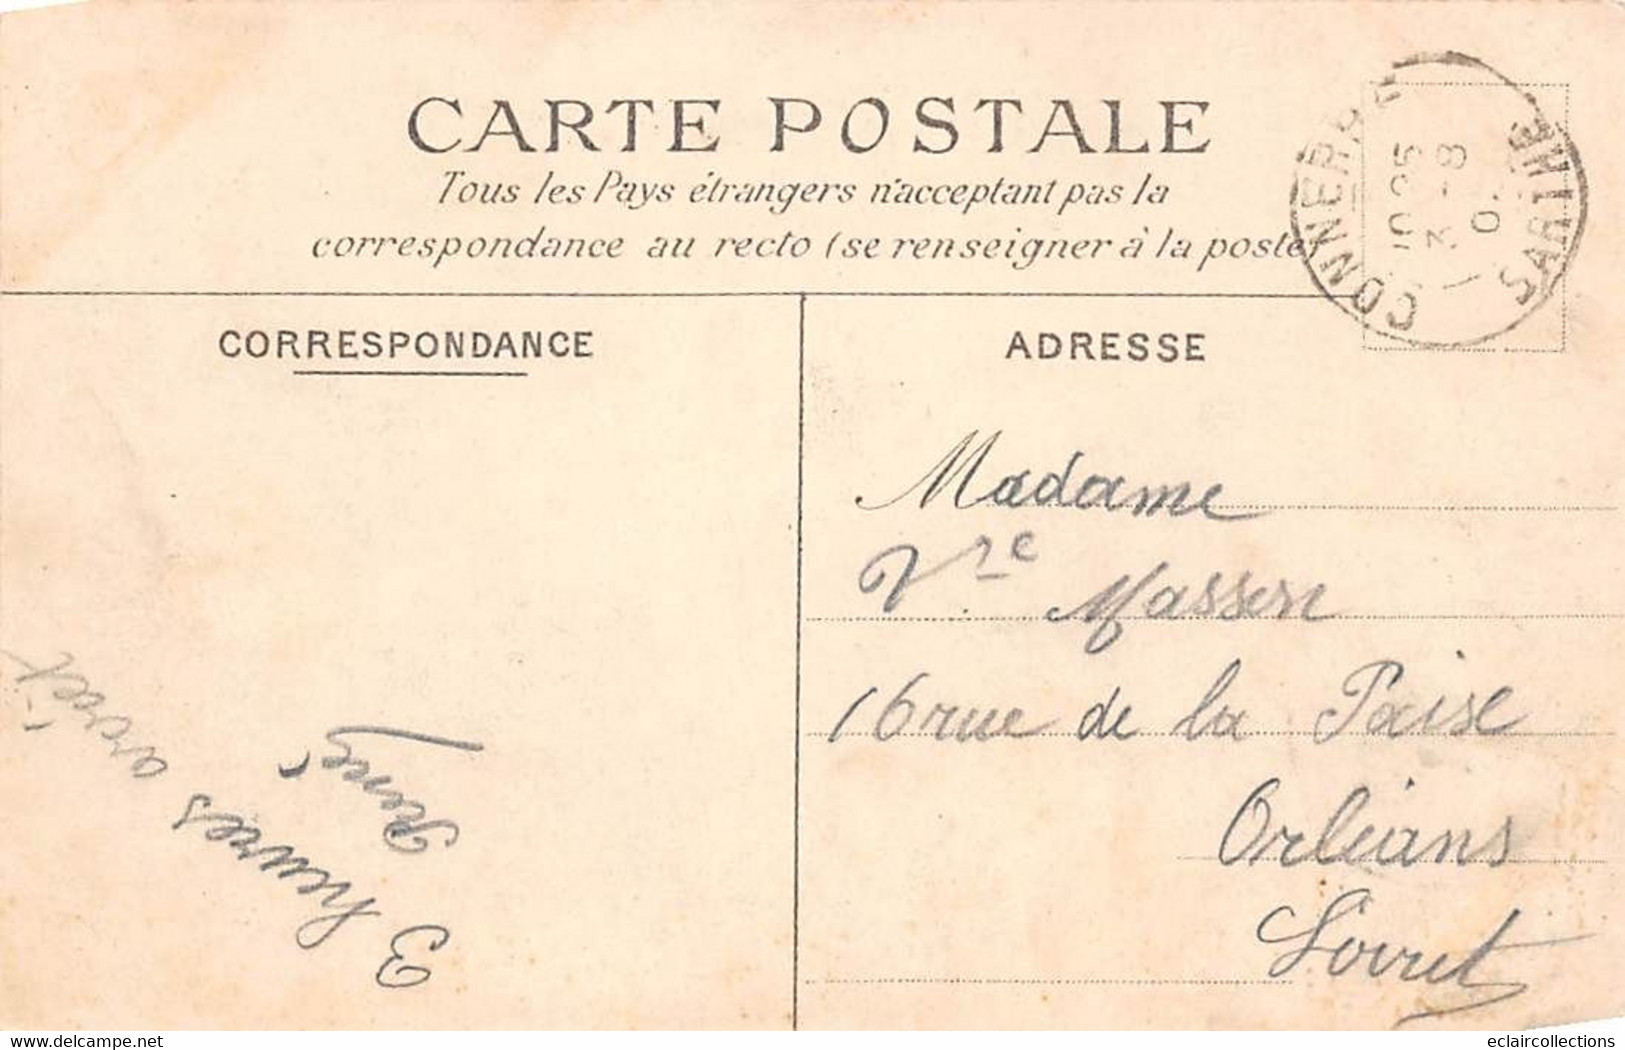 CARTE POSTALE
Tous les Pays étrangers n'acceptant pas la
correspondance au recto (se renseigner à la poste)
CONNERRE
10 25
3 - 8
0
SARTHE
CORRESPONDANCE
ADRESSE
Madame
Vve Masson
16 rue de la Paise
Orléans
Loiret
3 heures
René
www.delcampe.net
eclaircollections